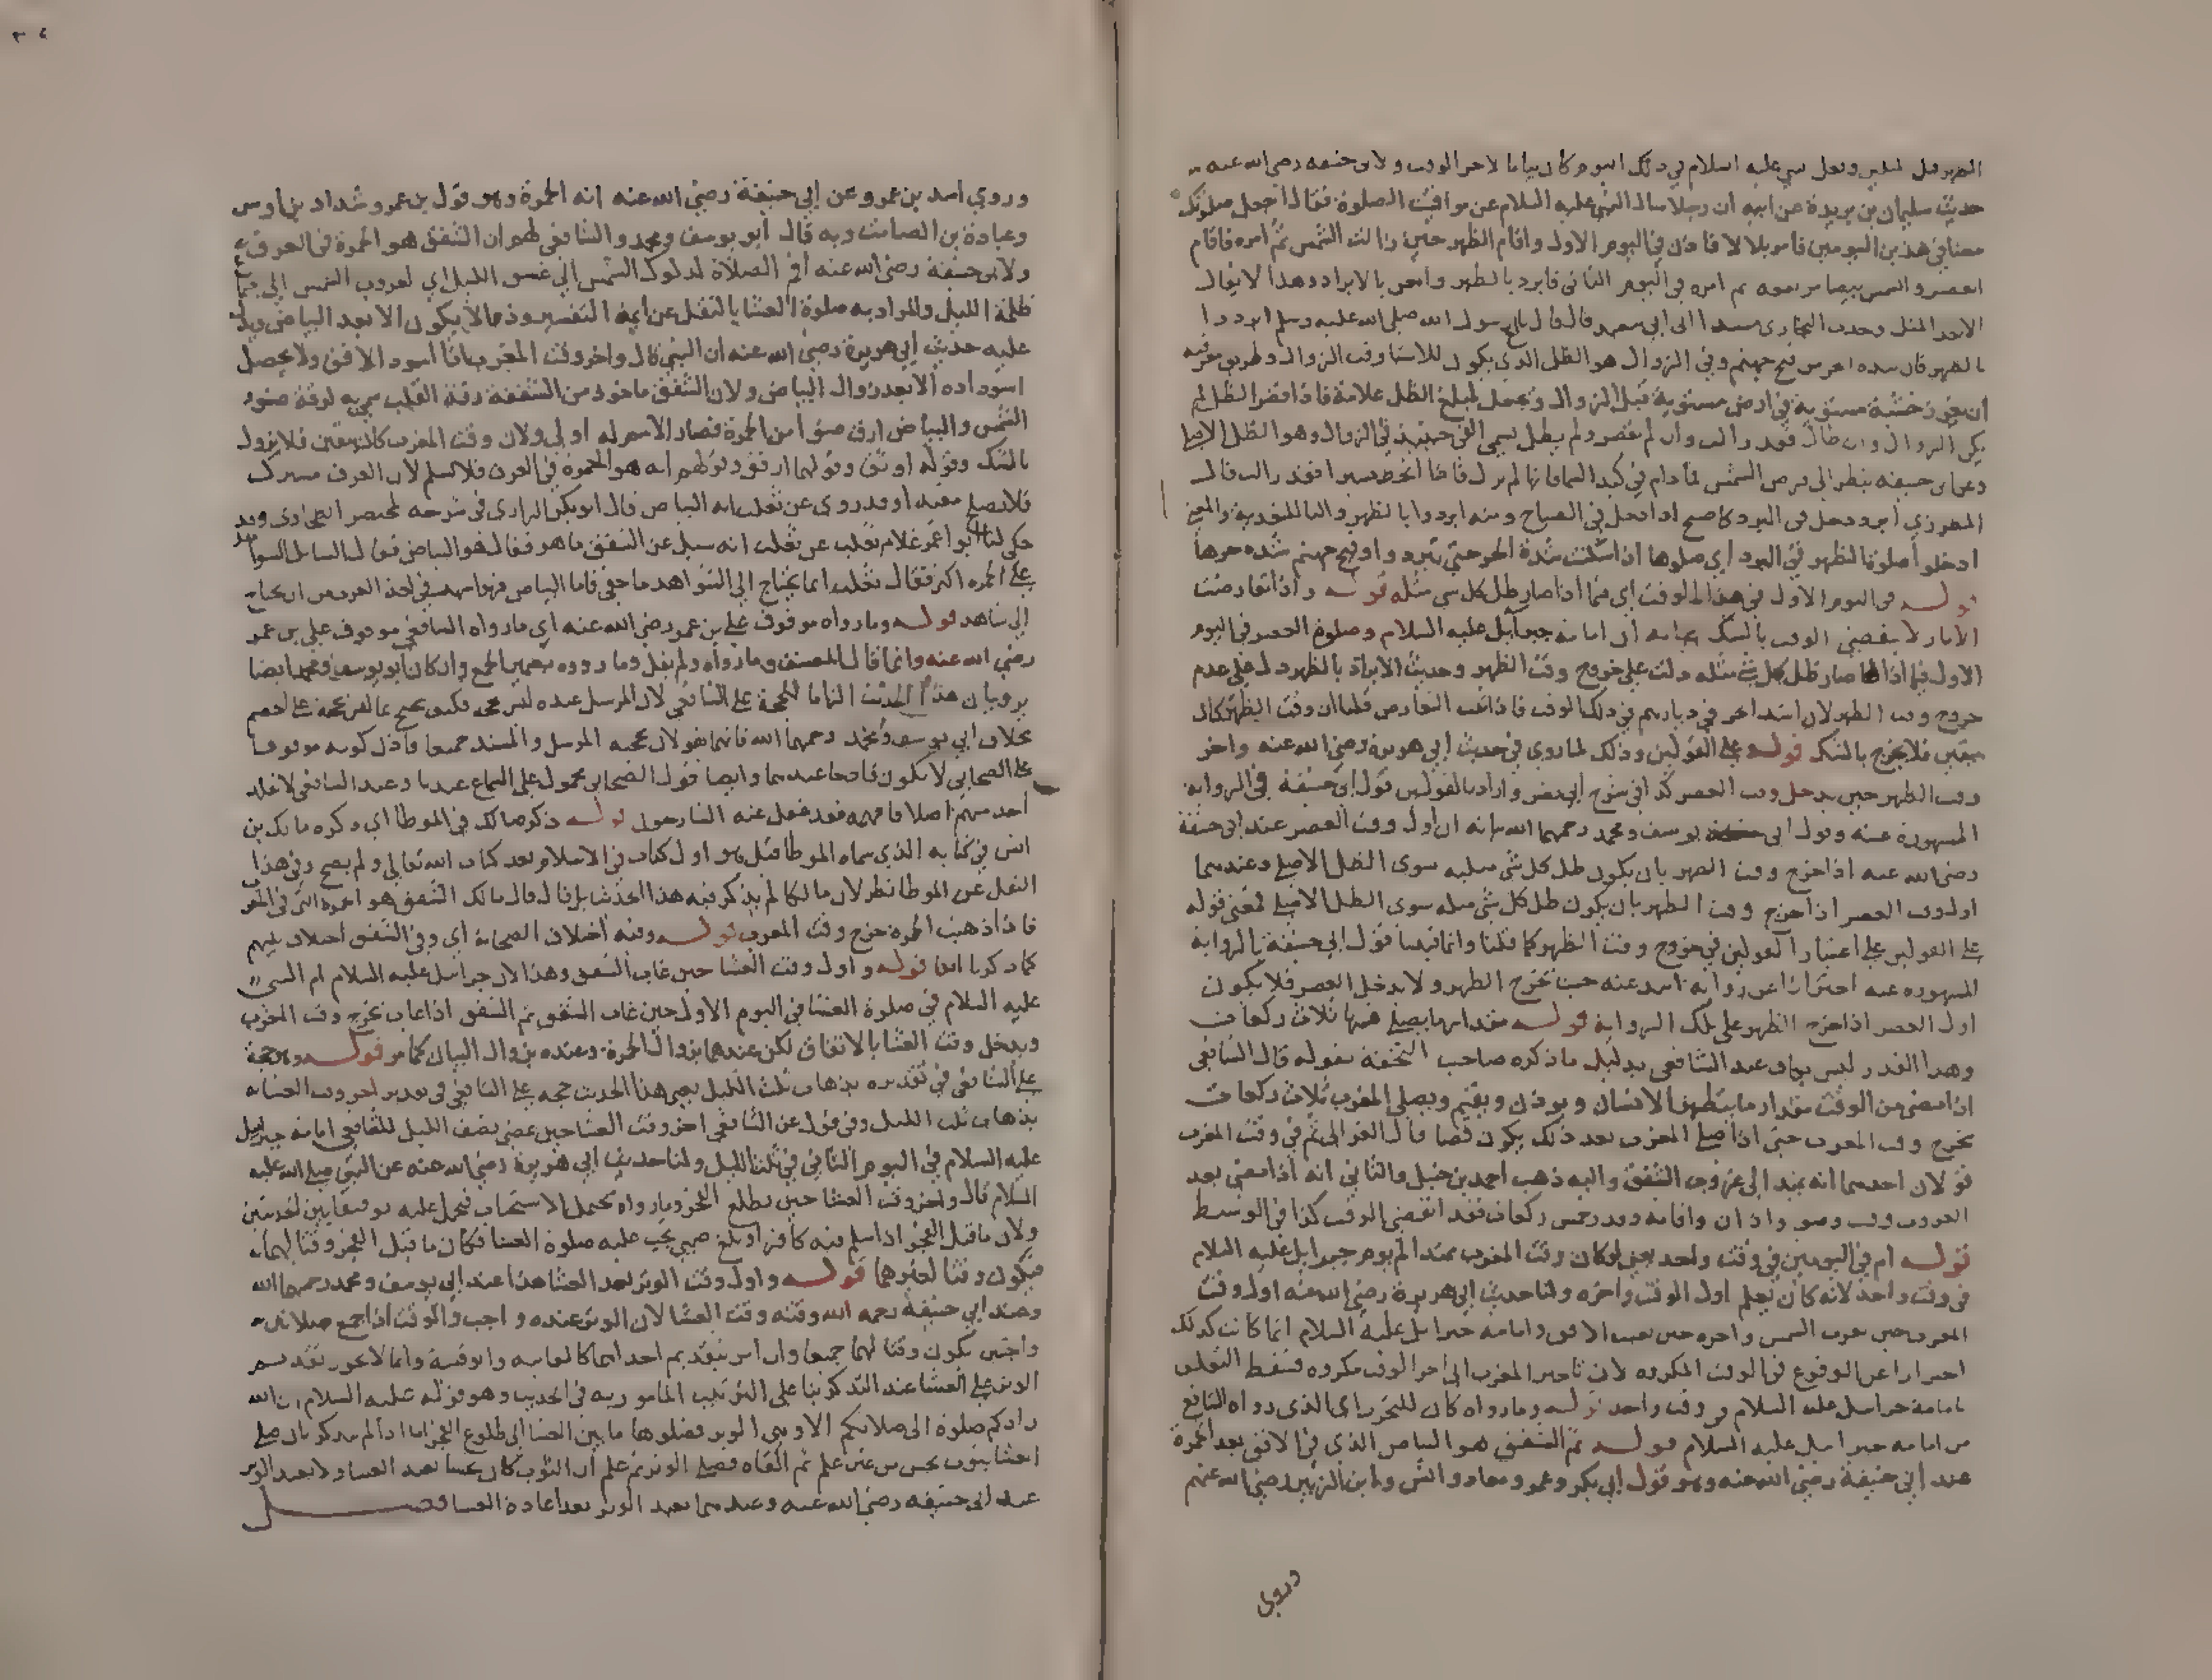 حديث سليمان بن بريدة عن ابيه ان رجلا سال النبي عليه السلام عن مواقيت الصلوة فقال اجعل صلوتك
معنا في هذين اليومين فامر بلالا فاذن في اليوم الاول واقام الظهر حين زالت الشمس ثم امره فاقام
العصر والشمس بيضا مرتفعه ثم امره في اليوم الثاني فابرد بالظهر وانعم بالابراد وهذا لا يقال
الا بعد المثل وحديث البخاري مسندا الى ابي سعيد قال قال رسول الله صلى الله عليه وسلم ابردوا
بالظهر فان شدة الحر من فيح جهنم وفي الزوال هو الظل الذي يكون للاشيا وقت الزوال وطريق معرفته
ان يغرز خشبة مستوية في ارض مستوية قبل الزوال ويجعل لمبلغ الظل علامة فاذا قصر الظل لم
يكن الزوال وان طال فقد زالت وان لم يقصر ولم يطل يسمى الفي حينئذ في الزوال وهو الظل الاصلي
ادخلوا صلوة الظهر في البرد اي صلوها اذا سكنت شدة الحر حتى تبرد وفيح جهنم شدة حرها
قوله في اليوم الاول في هذا الوقت اي فيما اذا صار ظل كل شي مثله قوله واذا تعارضت
الاثار لا ينقضي الوقت بالشك بيانه ان امامة جبرايل عليه السلام وصلوة العصر في اليوم
الاول فيما اذا صار ظل كل شي مثله دلت على خروج وقت الظهر وحديث الابراد بالظهر دل على عدم
خروج وقت الظهر لان اشتد الحر في ديارهم في ذلك الوقت فاذا ثبت التعارض قلنا ان وقت الظهر كان
بيقين فلا يخرج بالشك قوله على القولين وذلك لما روي في حديث ابي هريرة رضي الله عنه واخر
وقت الظهر حين يدخل وقت العصر كذا في شرح ابي نصر واراد بالقولين قول ابي حنيفة في الرواية
المشهورة عنه وقول ابي يوسف ومحمد رحمهما الله بيانه ان اول وقت العصر عند ابي حنيفة
رضي الله عنه اذا خرج وقت الظهر بان يكون ظل كل شي مثليه سوى الظل الاصلي وعندهما
اول وقت العصر اذا خرج وقت الظهر بان يكون ظل كل شي مثله سوى الظل الاصلي فمعنى قوله
على القولين على اعتبار القولين في خروج وقت الظهر كما قلنا وانما قيدنا قول ابي حنيفة بالرواية
المشهورة عنه احترازا عن رواية اسد عنه حيث تخرج الظهر ولا يدخل العصر فلا يكون
اول العصر اذا خرج الظهر على تلك الرواية قوله مقدار ما يصلى فيها ثلاث ركعات
وهذا القدر ليس بوقت عند الشافعي بدليل ما ذكره صاحب التحفة بقوله قال الشافعي
اذا مضى من الوقت مقدار ما يتطهر الانسان ويوذن ويقيم ويصلي المغرب ثلاث ركعات
يخرج وقت المغرب حتى اذا صلى المغرب بعد ذلك يكون قضا قال الغزالي ثم في وقت المغرب
قولان احدهما انه يمتد الى غروب الشفق واليه ذهب احمد بن حنبل والثاني انه اذا مضى بعد
الغروب وقت وضو واذان واقامة وقدر خمس ركعات فقد انقضى الوقت كذا في الوسيط
قوله ام في اليومين في وقت واحد يعني لو كان وقت المغرب ممتدا لم يوم جبرايل عليه السلام
في وقت واحد لانه كان يعلم اول الوقت واخره ولنا حديث ابي هريرة رضي الله عنه اول وقت
المغرب حين تغرب الشمس واخره حين يغيب الافق وامامة جبرايل عليه السلام انما كانت كذلك
احترازا عن الوقوع في الوقت المكروه لان تاخير المغرب الى اخر الوقت مكروه فسقط التعلق
بامامة جبرايل عليه السلام في وقت واحد قوله وما رواه كان للتحرز اي الذي رواه الشافعي
من امامة جبرايل عليه السلام قوله ثم الشفق هو البياض الذي في الافق بعد الحمرة
عند ابي حنيفة رضي الله عنه وهو قول ابي بكر وعمر ومعاذ وانس وابن الزبير رضي الله عنهم
وروى
وروى اسد بن عمرو عن ابي حنيفة رضي الله عنه انه الحمرة وهو قول بن عمر وشداد بن اوس
وعبادة بن الصامت وبه قال ابو يوسف ومحمد والشافعي لهم ان الشفق هو الحمرة في العرف
ولابي حنيفة رضي الله عنه اقم الصلاة لدلوك الشمس الى غسق الليل اي لغروب الشمس الى
ظلمة الليل والمراد به صلوة العشا بالنقل عن ايمة التفسير وذا لا يكون الا بعد البياض
عليه حديث ابي هريرة رضي الله عنه ان النبي قال واخر وقت المغرب اذا اسود الافق ولا يحصل
اسوداده الا بعد زوال البياض ولان الشفق ماخوذ من الشفقة رقة القلب سمي به لرقة ضوء
الشمس والبياض ارق ضوا من الحمرة فصار الاسم له اولى ولان وقت المغرب كان بيقين فلا يزول
بالشك وقوله اوثق وقولهما ارفق وقولهم انه هو الحمرة في العرف فلا نسلم لان العرف مشترك
حكى لنا ابو عمر غلام ثعلب عن ثعلب انه سيل عن الشفق ما هو فقال هو البياض فقال له السايل الشواهد
على الحمرة اكثر فقال ثعلب انما يحتاج الى الشواهد ما خفي فاما البياض فهو اشهر في لغة العرب من ان يحتاج
الى شاهد قوله وما رواه موقوف على بن عمر رضي الله عنه اي ما رواه الشافعي موقوف على بن عمر
رضي الله عنه وانما قال المصنف وما رواه ولم يقل وما رووه بضمير الجمع وان كان ابو يوسف ومحمد ايضا
يرويان هذا الحديث الزاما للحجة على الشافعي لان المرسل عنده ليس بحجة فكيف يحتج بما ليس بحجة على الخصم
بخلاف ابي يوسف ومحمد رحمهما الله فانهما يقولان بحجية المرسل والمسند جميعا فاذن كونه موقوفا
على الصحابي لا يكون قادحا عندهما وايضا قول الصحابي محمول على السماع عندنا وعند الشافعي لا يقلد
احد منهم اصلا فافهمه فقد غفل عنه الشارحون قوله ذكره مالك في الموطا اي ذكره مالك بن
انس في كتابه الذي سماه الموطا قيل هو اول كتاب في الاسلام بعد كتاب الله تعالى ولم يصح وفي هذا
النقل عن الموطا نظر لان مالكا لم يذكر فيه هذا الحديث بل قال قال مالك الشفق هو الحمرة التي في المغرب
فاذا ذهبت الحمرة خرج وقت المغرب قوله وفيه اختلاف الصحابة اي وفي الشفق اختلاف بينهم
كما ذكرنا انفا قوله واول وقت العشا حين غاب الشفق وهذا لان جبرايل عليه السلام ام النبي
عليه السلام في صلوة العشا في اليوم الاول حين غاب الشفق ثم الشفق اذا غاب يخرج وقت المغرب
ويدخل وقت العشا بالاتفاق لكن عندهما بزوال الحمرة وعنده بزوال البياض كما مر قوله وهو حجة
على الشافعي في تقديره بذهاب ثلث الليل يعني هذا الحديث حجة على الشافعي في تقدير اخر وقت العشا
بذهاب ثلث الليل وفي قول عن الشافعي اخر وقت العشا حين يمضي نصف الليل للشافعي امامة جبرايل
عليه السلام في اليوم الثاني في ثلث الليل ولنا حديث ابي هريرة رضي الله عنه عن النبي صلى الله عليه
السلام قال واخر وقت العشا حين يطلع الفجر وما رواه محتمل الاستحباب فيحمل عليه توفيقا بين الحديثين
ولان ما قبل الفجر اذا اسلم فيه كافر او بلغ صبي يجب عليه صلوة العشا فكان ما قبل الفجر وقتا لهما
فيكون وقتا لغيرهما قوله واول وقت الوتر بعد العشا هذا عند ابي يوسف ومحمد رحمهما الله
وعند ابي حنيفة رحمه الله وقته وقت العشا لان الوتر عنده واجب والوقت اذا جمع صلاتين
واجبتين يكون وقتا لهما جميعا وان امر بتقديم احداهما كالفايتة والوقتية وانما لا يجوز تقديم
الوتر على العشا عند التذكر بنا على الترتيب المامور به في الحديث وهو قوله عليه السلام ان الله
زادكم صلوة الى صلاتكم الا وهي الوتر فصلوها ما بين العشا الى طلوع الفجر اما اذا لم يتذكر بان صلى
العشا بثوب نجس من غير علم ثم القاه فصلى الوتر ثم علم ان الثوب كان نجسا يعيد العشا ولا يعيد الوتر
عند ابي حنيفة رضي الله عنه وعندهما يعيد الوتر بعد اعادة العشا فصل